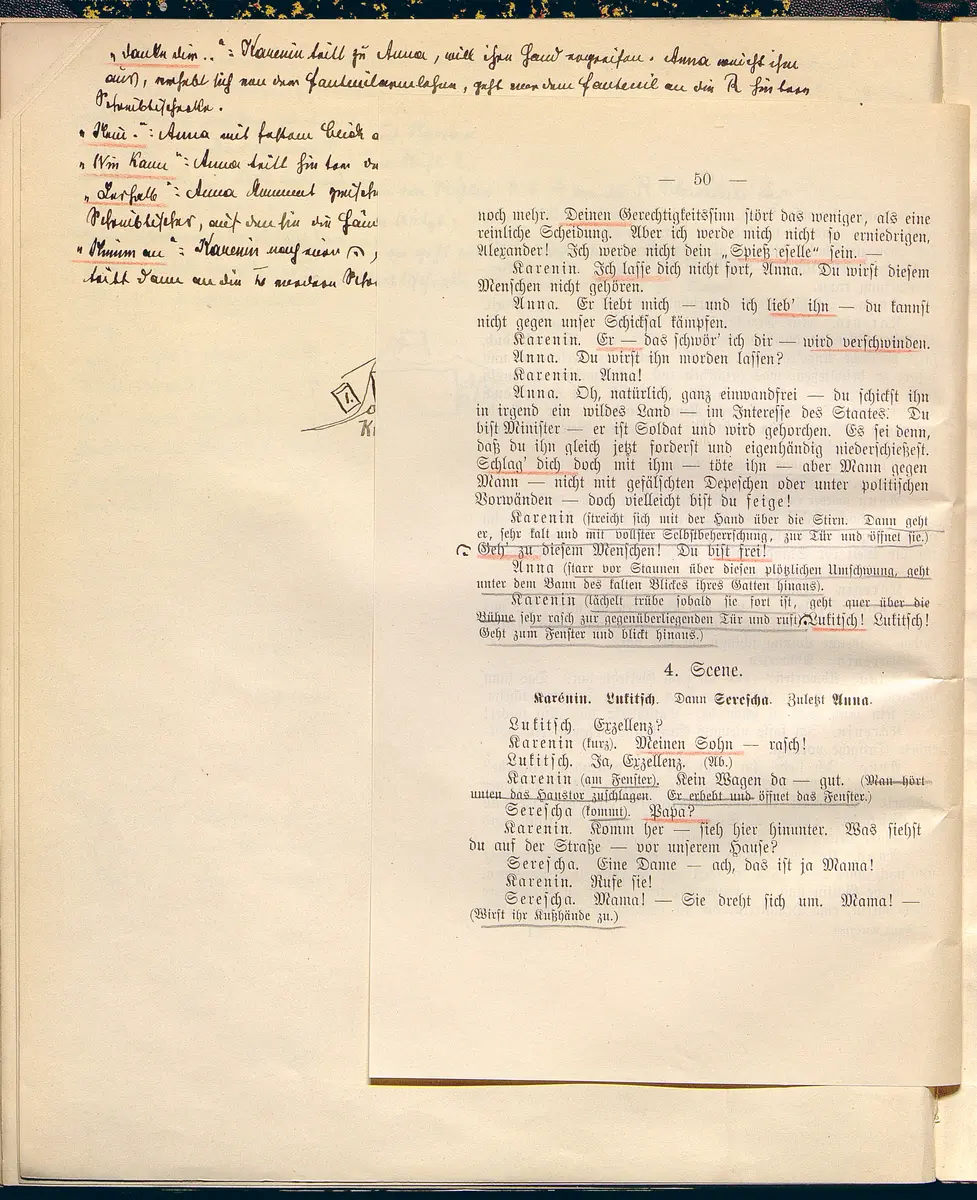 „danke dir..“: Karenin tritt zu Anna, will ihre Hand ergreifen. Anna weicht ihm
aus, erhebt sich von der Fauteuilarmlehne, geht vor dem Fauteuil an die R hintere
Schreibtischecke.
„Nein.“: Anna mit festem Blick
„Wie kann“: Anna tritt hinter
„Deshalb“: Anna kommt zwischen
Schreibtisches, auf den sie die Hände
„Nimm an“: Karenin nach einer
tritt dann an die vordere
1.
— 50 —
noch mehr. Deinen Gerechtigkeitssinn stört das weniger, als eine
reinliche Scheidung. Aber ich werde mich nicht so erniedrigen,
Alexander! Ich werde nicht dein „Spieß eselle“ sein. —
Karenin. Ich lasse dich nicht fort, Anna. Du wirst diesem
Menschen nicht gehören.
Anna. Er liebt mich — und ich lieb' ihn — du kannst
nicht gegen unser Schicksal kämpfen.
Karenin. Er — das schwör' ich dir — wird verschwinden.
Anna. Du wirst ihn morden lassen?
Karenin. Anna!
Anna. Oh, natürlich, ganz einwandfrei — du schickst ihn
in irgend ein wildes Land — im Interesse des Staates. Du
bist Minister — er ist Soldat und wird gehorchen. Es sei denn,
daß du ihn gleich jetzt forderst und eigenhändig niederschießest.
Schlag' dich doch mit ihm — töte ihn — aber Mann gegen
Mann — nicht mit gefälschten Depeschen oder unter politischen
Vorwänden — doch vielleicht bist du feige!
Karenin (streicht sich mit der Hand über die Stirn. Dann geht
er, sehr kalt und mit vollster Selbstbeherrschung, zur Tür und öffnet sie.)
Geh' zu diesem Menschen! Du bist frei!
Anna (starr vor Staunen über diesen plötzlichen Umschwung, geht
unter dem Bann des kalten Blickes ihres Gatten hinaus).
Karenin (lächelt trübe sobald sie fort ist, geht quer über die
Bühne sehr rasch zur gegenüberliegenden Tür und ruft) Lukitsch! Lukitsch!
Geht zum Fenster und blickt hinaus.)
4. Scene.
Karénin. Lukitsch. Dann Serescha. Zuletzt Anna.
Lukitsch. Exzellenz?
Karenin (kurz). Meinen Sohn — rasch!
Lukitsch. Ja, Exzellenz. (Ab.)
Karenin (am Fenster). Kein Wagen da — gut. (Man hört
unten das Haustor zuschlagen. Er erbebt und öffnet das Fenster.)
Serescha (kommt). Papa?
Karenin. Komm her — sieh hier hinunter. Was siehst
du auf der Straße — vor unserem Hause?
Serescha. Eine Dame — ach, das ist ja Mama!
Karenin. Rufe sie!
Serescha. Mama! — Sie dreht sich um. Mama! —
(Wirft ihr Kußhände zu.)